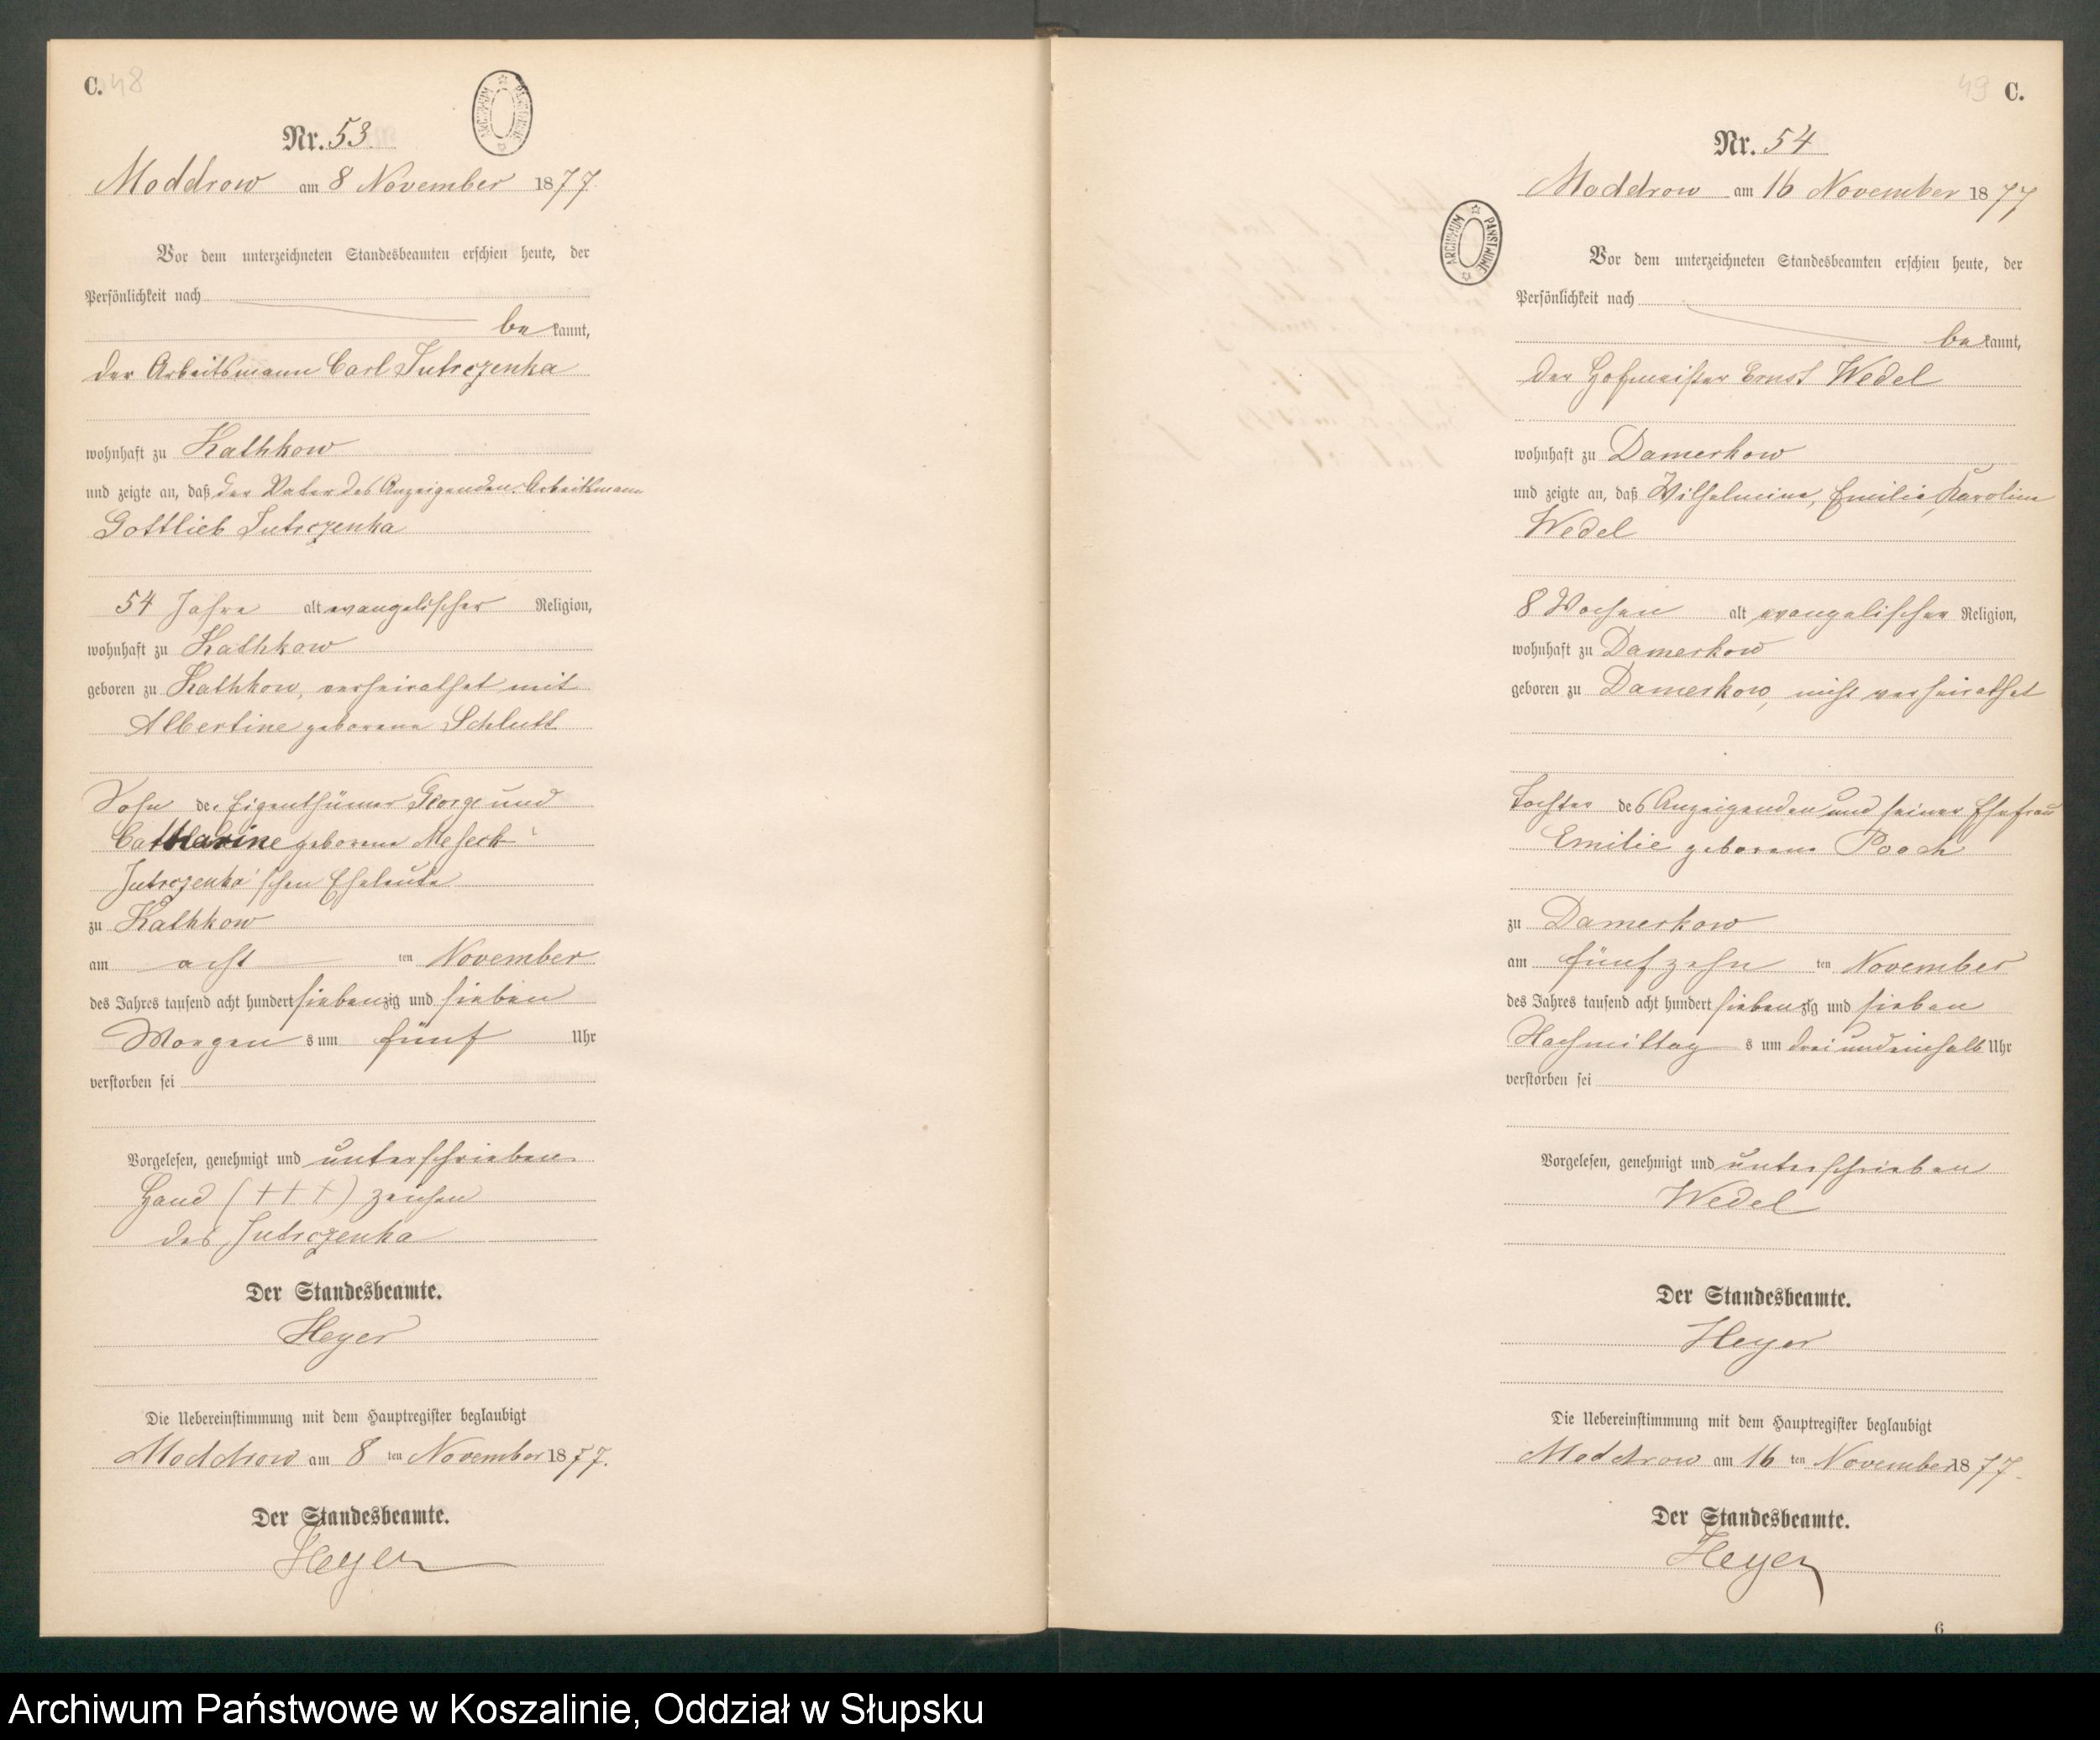 C. 48
Nr. 53.
Moddrow am 8 November 1877.
Vor dem unterzeichneten Standesbeamten erschien heute, der
Persönlichkeit nach
be kannt,
der Arbeitsmann Carl Jutrczenka
wohnhaft zu Kathkow
und zeigte an, daß der Vater des Anzeigenden, Arbeitsmann
Gottlieb Jutrczenka
54 Jahre alt evangelischer Religion,
wohnhaft zu Kathkow
geboren zu Kathkow, verheirathet mit
Albertine geborene Schlutt
Sohn der Eigenthümer George und
Catharine geborene Meseck
Jutrczenka'schen Eheleute
zu Kathkow
am acht ten November
des Jahres tausend acht hundert siebenzig und sieben
Morgen s um fünf Uhr
verstorben sei
Vorgelesen, genehmigt und unterschrieben
Hand (+++) zeichen
des Jutrczenka
Der Standesbeamte.
Heyer
Die Uebereinstimmung mit dem Hauptregister beglaubigt
Moddrow am 8 ten November 1877.
Der Standesbeamte.
Heyer
ARCHIWUM PAŃSTWOWE
49 C.
Nr. 54
Moddrow am 16 November 1877
Vor dem unterzeichneten Standesbeamten erschien heute, der
Persönlichkeit nach
be kannt,
der Hofmeister Ernst Wedel
wohnhaft zu Damerkow
und zeigte an, daß Wilhelmine, Emilie, Karoline
Wedel
8 Wochen alt evangelischer Religion,
wohnhaft zu Damerkow
geboren zu Damerkow, nicht verheirathet
Tochter des Anzeigenden und seiner Ehefrau
Emilie geborene Pooch
zu Damerkow
am fünfzehn ten November
des Jahres tausend acht hundert siebenzig und sieben
Nachmittag s um drei und einhalb Uhr
verstorben sei
Vorgelesen, genehmigt und unterschrieben
Wedel
Der Standesbeamte.
Heyer
Die Uebereinstimmung mit dem Hauptregister beglaubigt
Moddrow am 16 ten November 1877.
Der Standesbeamte.
Heyer
6
ARCHIWUM PAŃSTWOWE
Archiwum Państwowe w Koszalinie, Oddział w Słupsku